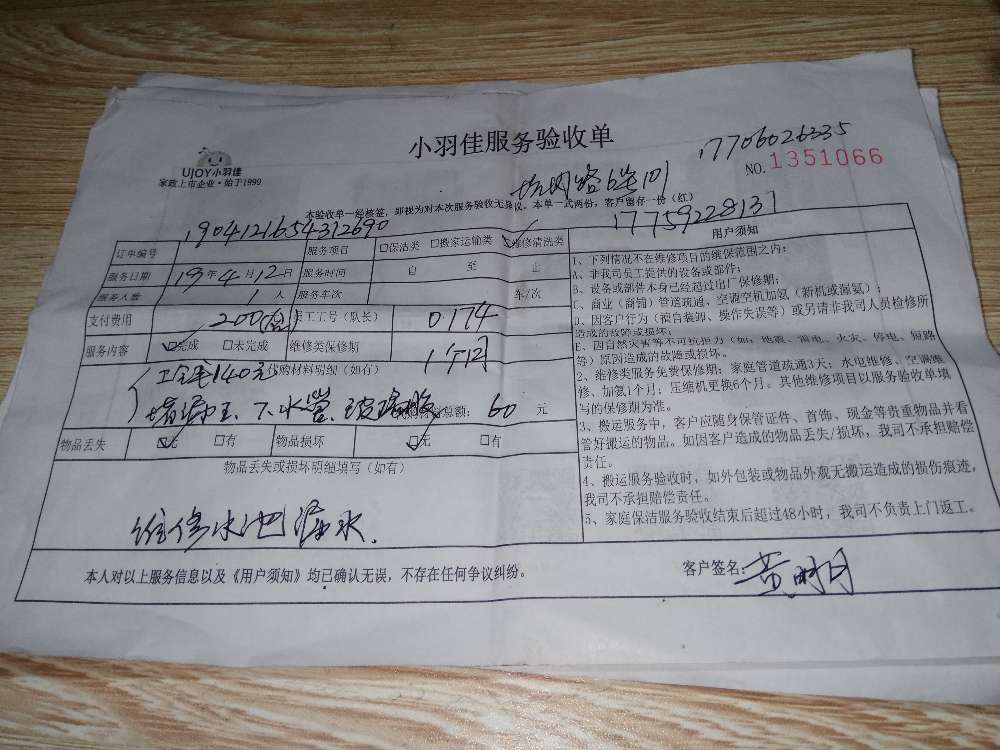 小羽佳服务验收单
17706026335
UJOY小羽佳
家政上市企业·始于1999
NO.1351066
本验收单一经核签，即视为对本次服务验收无异议。本单一式两份，客户留存一份（红）
17759228137
订单编号 1904121654312690 服务项目 □保洁类 □搬家运输类 ☑维修清洗类
服务日期 19年4月12日 服务时间 自 至 止
服务人数 1人 服务车次 车/次
支付费用 200 员工工号（队长） 0174
服务内容 ☑完成 □未完成 维修类保修期 1个月
工包毛140元 代购材料明细（如有）
堵漏王、下水管、玻璃胶 总额：60元
物品丢失 ☑无 □有 物品损坏 ☑无 □有
物品丢失或损坏明细填写（如有）
维修水池漏水.
用户须知
1、下列情况不在维修项目的维保范围之内：
A、非我司员工提供的设备或部件；
B、设备或部件本身已经超过出厂保修期；
C、商业（商铺）管道疏通、空调空机加氨（新机或漏氨）；
D、因客户行为（预自装卸、操作失误等）或另请非我司人员检修所
造成的故障或损坏；
E、因自然灾害等不可抗拒力（如：地震、雷电、火灾、停电、短路
等）原因造成的故障或损坏。
2、维修类服务免费保修期：家庭管道疏通3天；水电维修、空调维
修、加氨1个月；压缩机更换6个月。其他维修项目以服务验收单填
写的保修期为准。
3、搬运服务中，客户应随身保管证件、首饰、现金等贵重物品并看
管好搬运的物品。如因客户造成的物品丢失/损坏，我司不承担赔偿
责任。
4、搬运服务验收时，如外包装或物品外观无搬运造成的损伤痕迹，
我司不承担赔偿责任。
5、家庭保洁服务验收结束后超过48小时，我司不负责上门返工。
本人对以上服务信息以及《用户须知》均已确认无误，不存在任何争议纠纷。
客户签名：黄明月